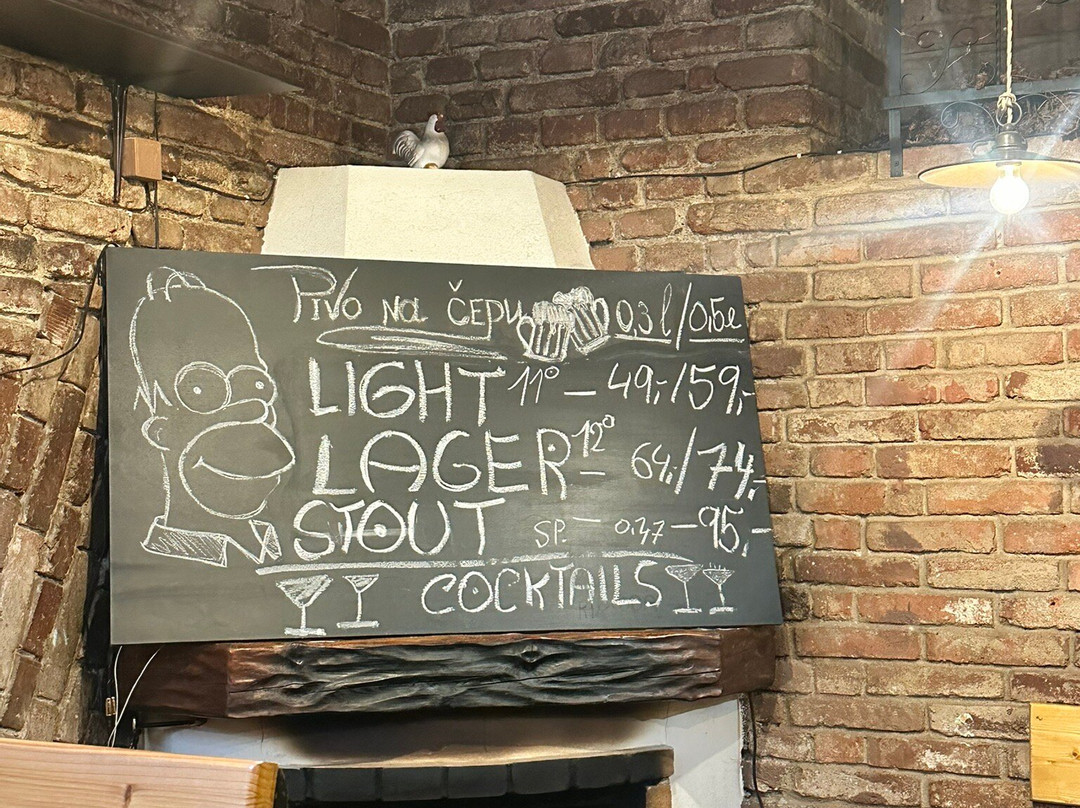 Pivo na čepu 0,3l/0,5l
LIGHT 11° – 49,-/59,-
LAGER 12° – 64,-/74,-
STOUT SP. – 0,47 – 95,-
COCKTAILS